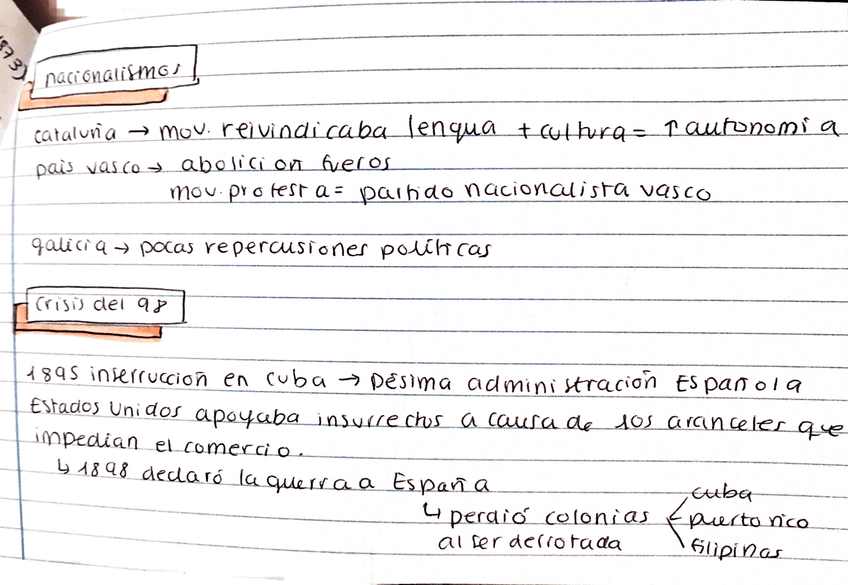 1873)
nacionalismos
cataluña → mov. reivindicaba lengua + cultura = ↑ autonomia
pais vasco → abolicion fueros
mov. protesta = partido nacionalista vasco
galicia → pocas repercusiones políticas
crisis del 98
1895 inserrucción en cuba → pésima administración Española
Estados Unidos apoyaba insurrectos a causa de los aranceles que
impedian el comercio.
↳ 1898 declaró la guerra a España
↳ perdió colonias cuba
puerto rico
al ser derrotada filipinas